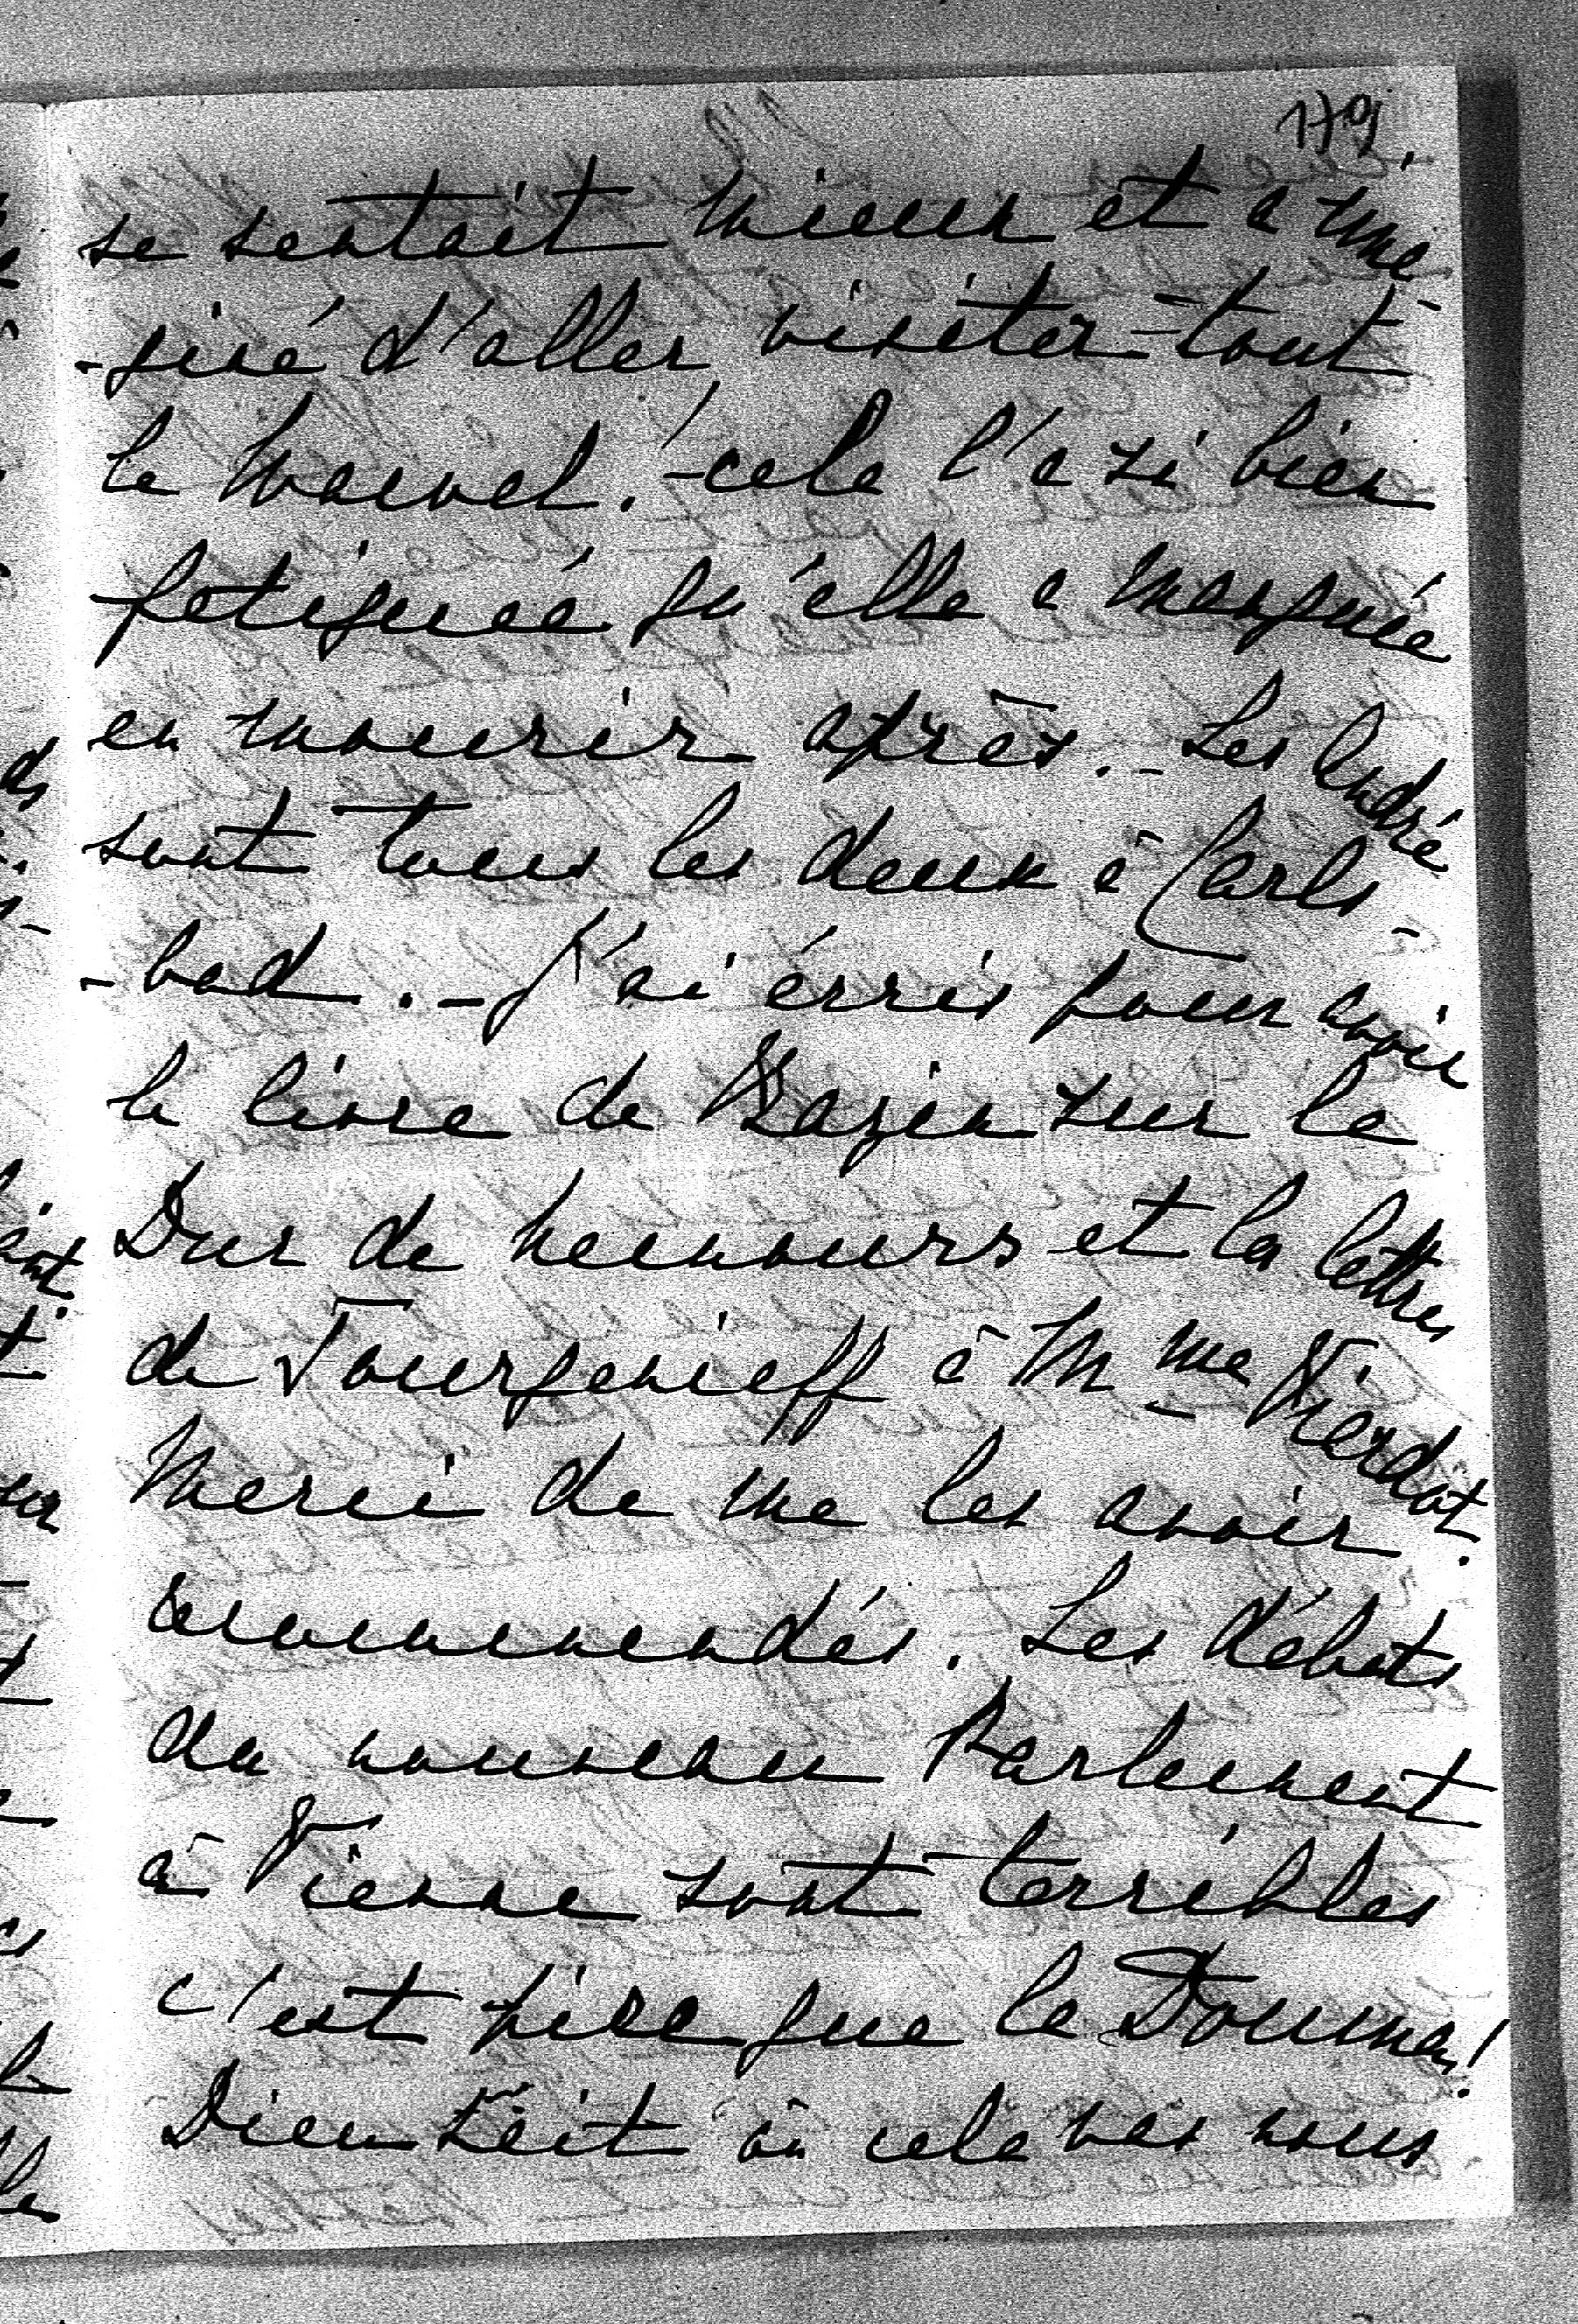 179
se sentait mieux et a ima-
-giné d'aller visiter tout
le Wawel. - cela l'a si bien
fatiguée qu'elle a manquée
en mourir après. - Les André
sont tous les deux à Carls-
-bad. - J'ai écris pour avoir
le livre de Bazin sur le
Duc de Nemours et la lettres
de Tourgenieff à Mme Viardot.
Merci de me les avoir
recommendés. Les débats
du nouveau Parlement
à Vienne sont terribles
c'est pire que la Douma!
Dieu sait où cela va nous